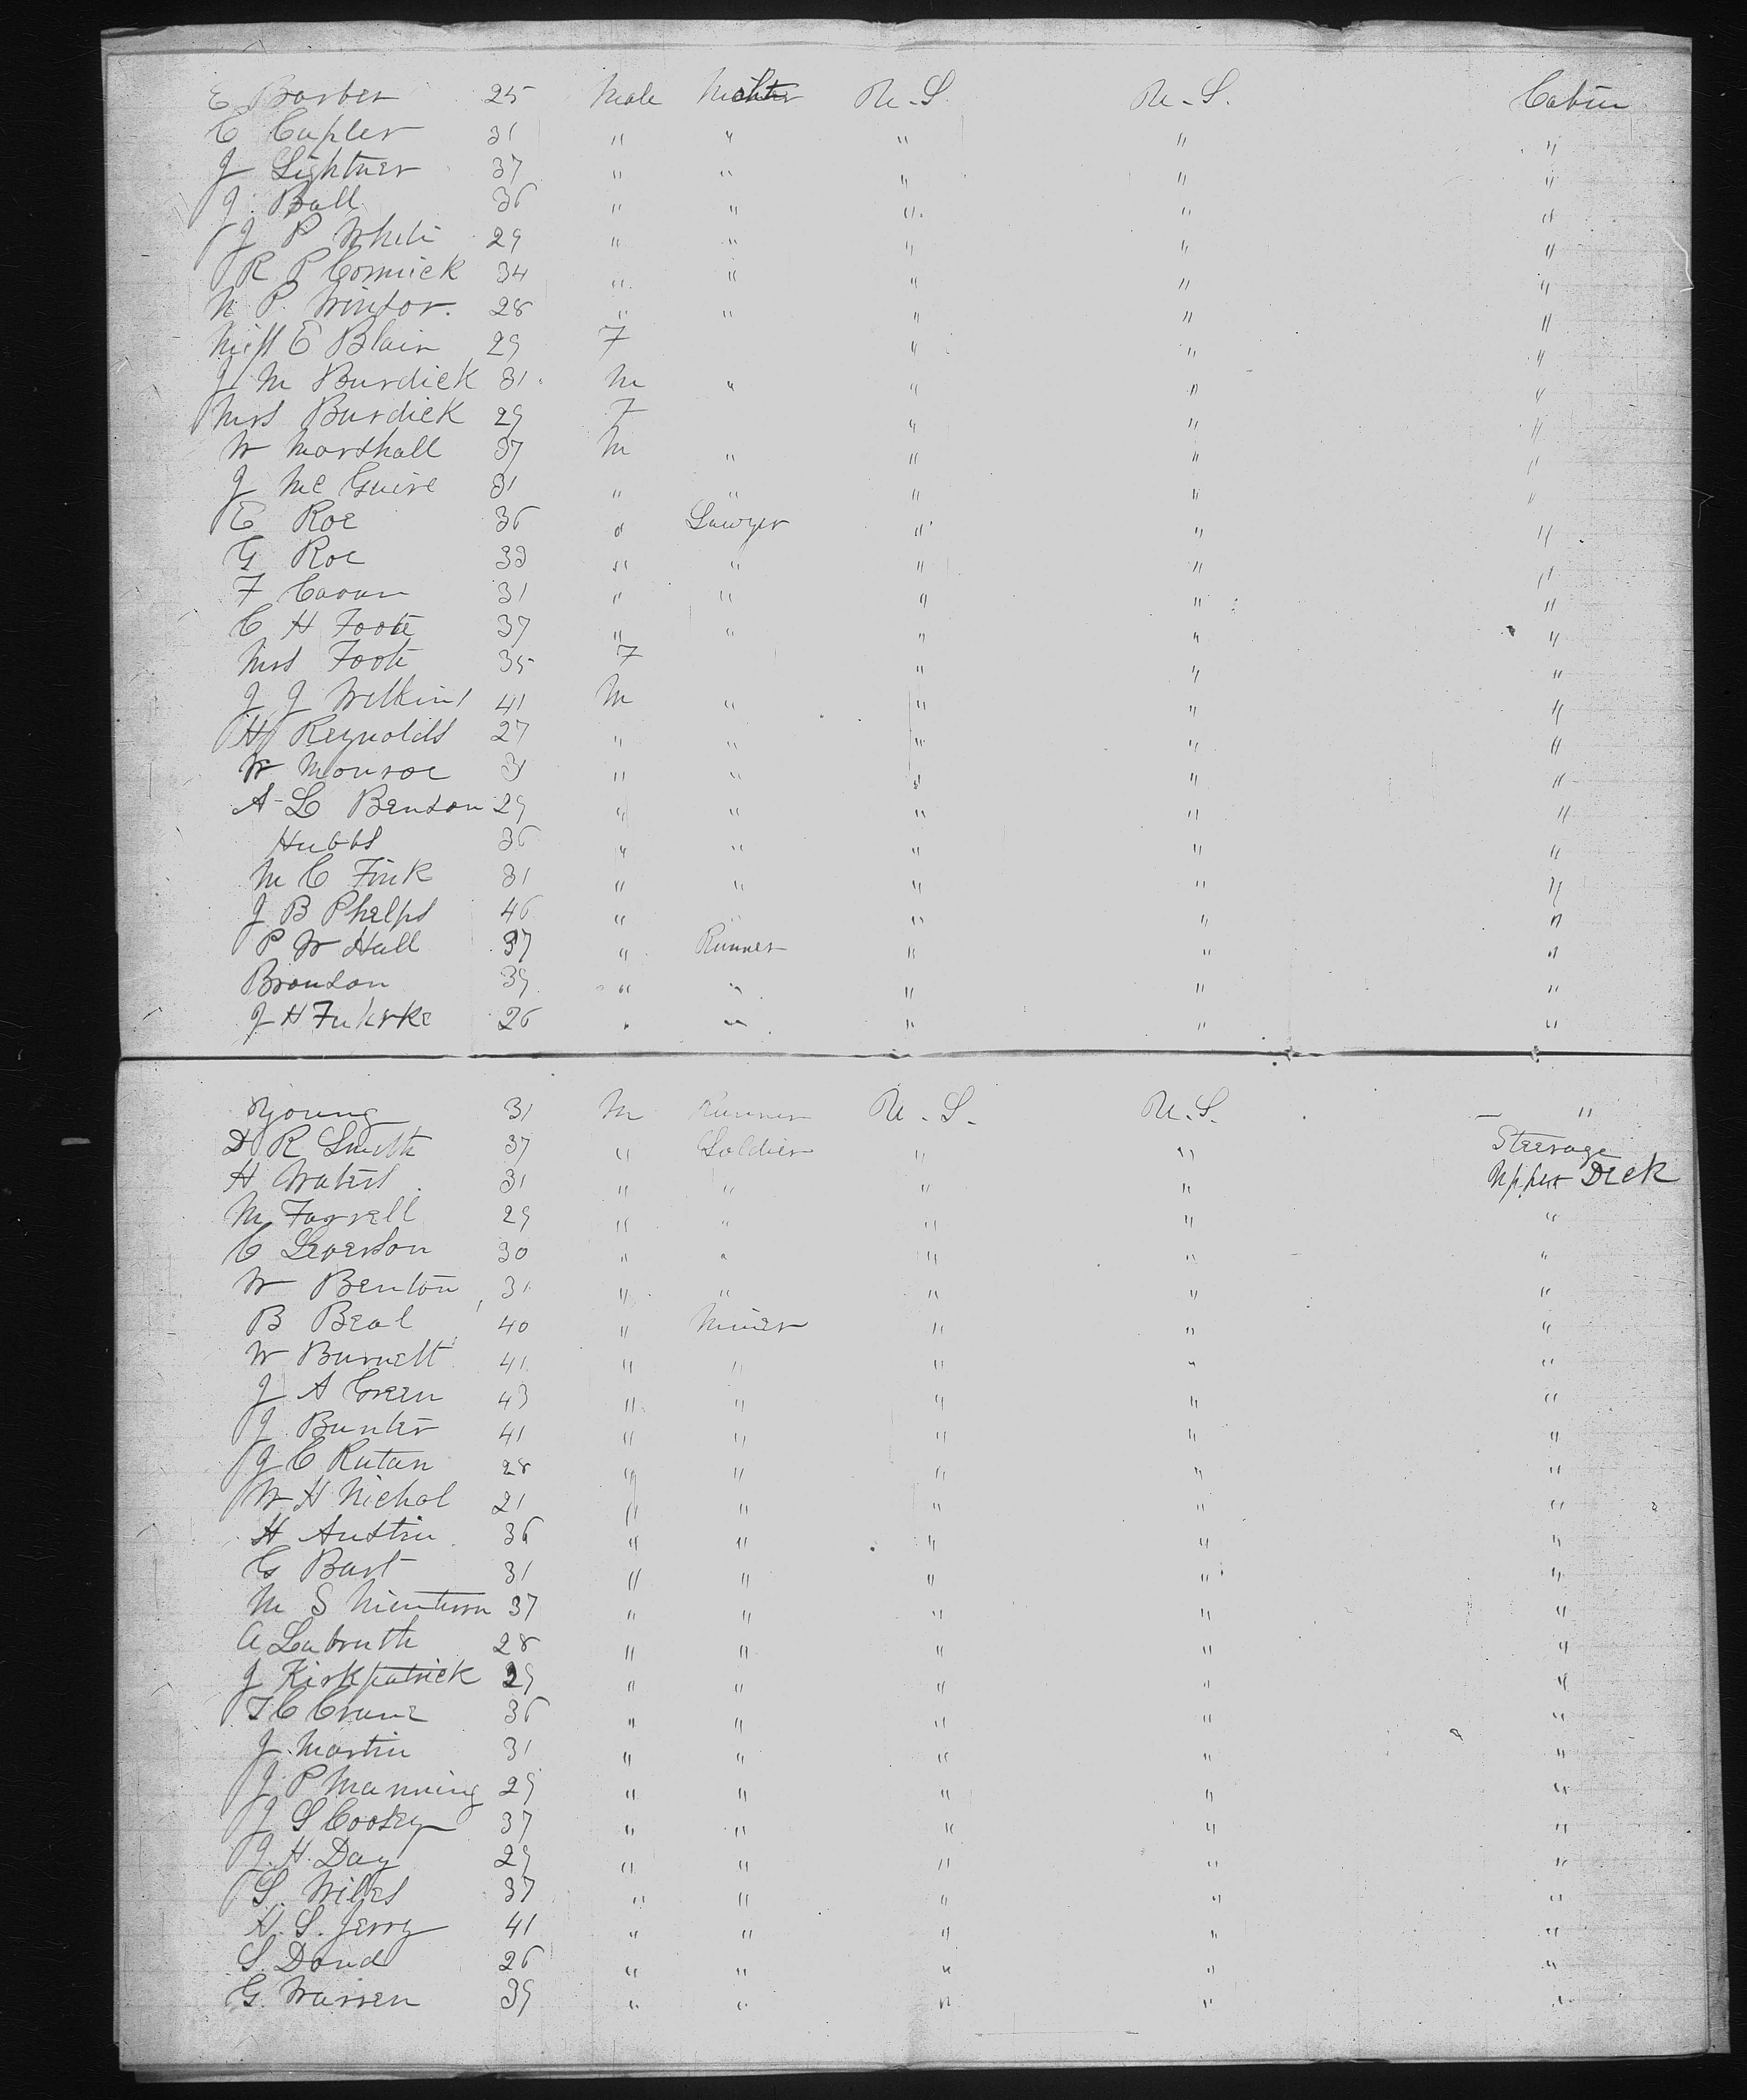 E Barber 25 Male U.S. U.S. Cabin
C Cupler 31 " " " " "
J Lightner 37 " " " " "
J. Ball 36 " " " " "
J P White 29 " " " " "
R P Cormick 34 " " " " "
N P. Winsor. 28 " " " " "
Miss E Blair 29 F " " "
J M Burdick 31. M " " " "
Mrs Burdick 29 F " " "
W Marshall 37 M " " " "
J McGuire 31 " " " " "
E Roe 36 " Lawyer " " "
G Roe 33 " " " " "
F 31 " " " " "
C H Foote 37 " " " " "
Mrs Foote 35 F " " "
J J Wilkins 41 M " " " "
H Reynolds 27 " " " " "
W Monroe 31 " " " " "
A L Benson 29 " " " " "
Hubbs 36 " " " " "
M C Fink 31 " " " " "
J B Phelps 46 " " " " "
P W Hall 37 " Runner " " "
Bronson 39 " " " " "
J H 26 " " " " "
Young 31 M Runner U.S. U.S. "
D R Smith 37 " Soldier " " Steerage
H Waters 31 " " " " Upper Deck
M Farrell 29 " " " " "
C Leverson 30 " " " " "
W Benton 31 " " " " "
B Beal 40 " Miner " " "
W Burnett 41 " " " " "
J A Green 43 " " " " "
J Bunker 41 " " " " "
J C Rutan 28 " " " " "
W H Nichol 21 " " " " "
H Austin 36 " " " " "
G Burt 31 " " " " "
M S 37 " " " " "
A Labruth 28 " " " " "
J Kirkpatrick 29 " " " " "
T C Crane 36 " " " " "
J. Martin 31 " " " " "
J. P Manning 29 " " " " "
J S Cooley 37 " " " " "
J. H. Day 29 " " " " "
S. Wilkes 37 " " " " "
H. S. Jerry 41 " " " " "
S. Doud 26 " " " " "
G. Warren 39 " " " " "